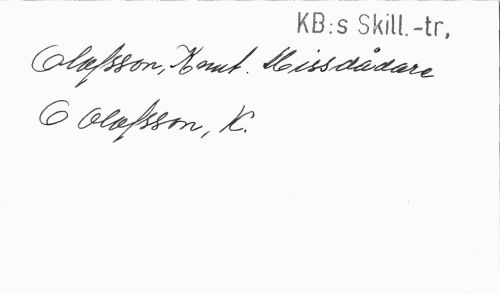 KB:s Skill.-tr.
Olofsson, Knut. Missdådare
Olofsson, K.